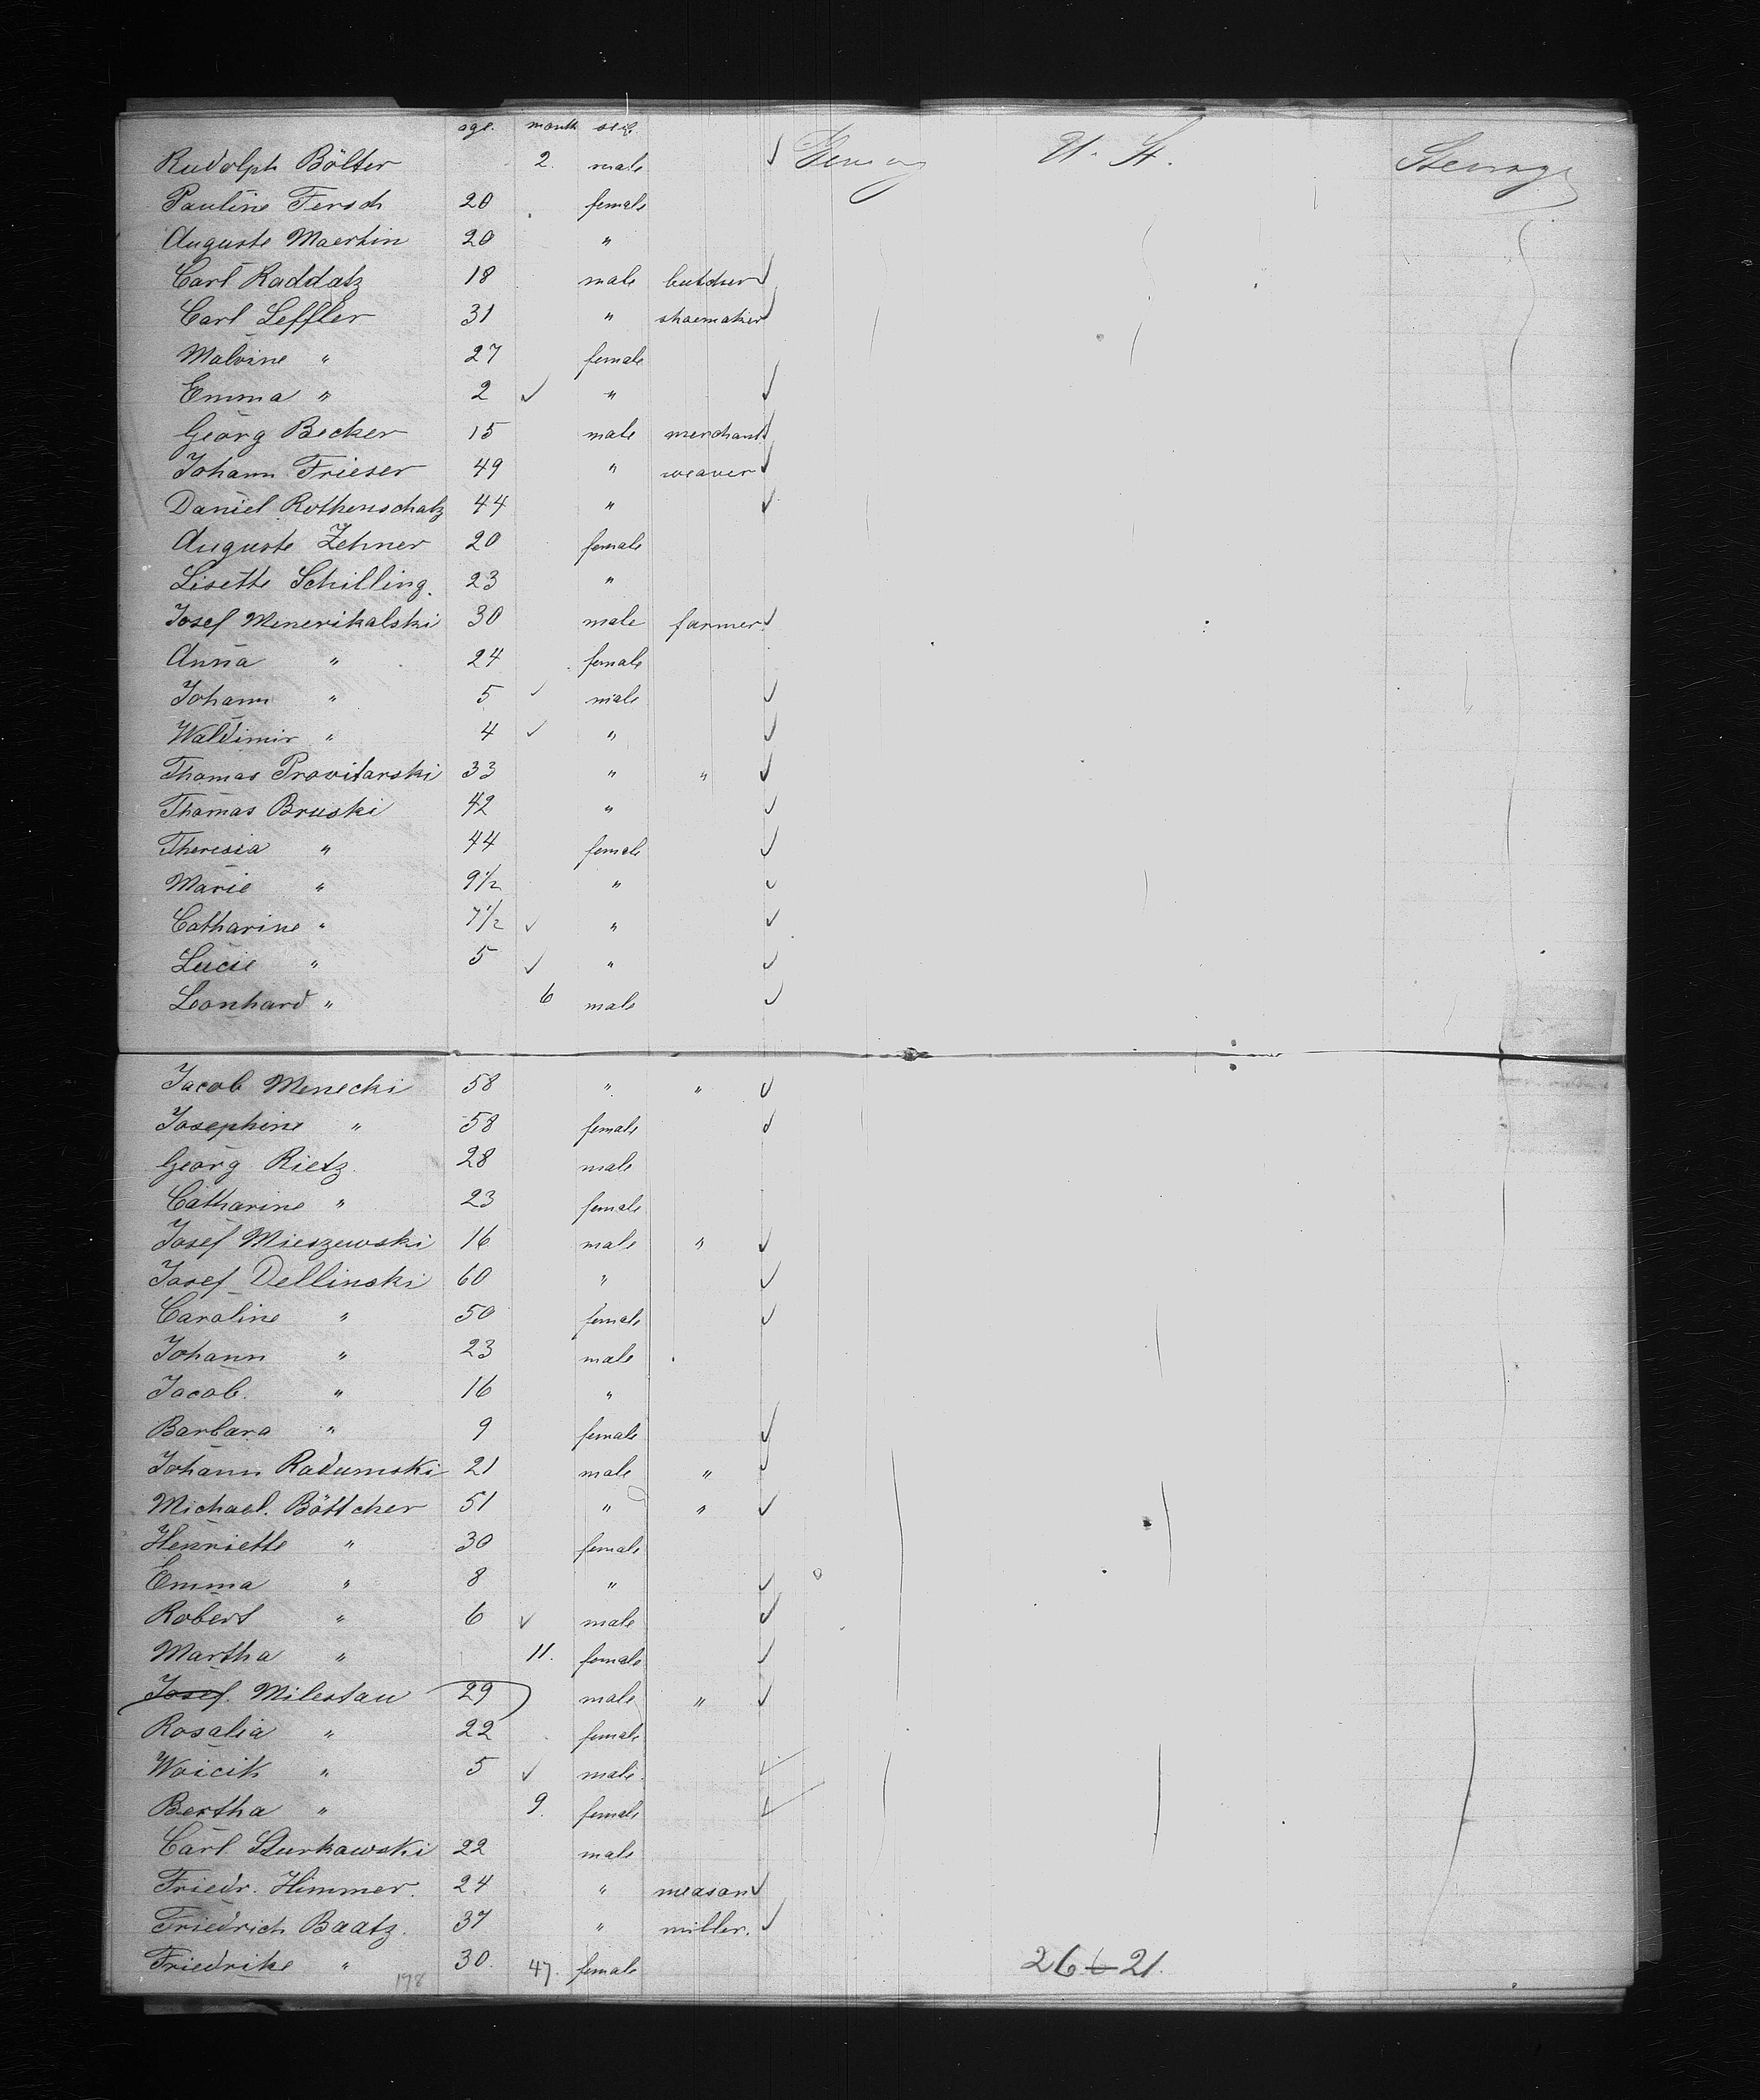 age. month sex
Rudolph Bölter 2. male Germany U. St. Steerage
Pauline Fersch 20 female
Auguste Maertin 20 "
Carl Raddatz 18 male butcher
Carl Leffler 31 " shoemaker
Malvine " 27 female
Emma " 2 "
Georg Becker 15 male merchant
Johann Frieser 49 " weaver
Daniel Rothenschatz 44 "
Auguste Zehner 20 female
Lisette Schilling. 23 "
Josef Menerikalski 30 male farmer.
Anna " 24 female
Johann " 5 male
Waldimir " 4 "
Thomas Provitarski 33 " "
Thomas Bruski 42 "
Theresia " 44 female
Marie " 9 1/2 "
Catharine " 7 1/2 "
Lucie " 5 "
Leonhard " 6 male
Jacob Menecki 58 " "
Josephine " 58 female
Georg Rietz. 28 male
Catharine " 23 female
Josef Mieszewski 16 male "
Josef Dellinski 60 "
Caroline " 50 female
Johann " 23 male
Jacob. " 16 "
Barbara " 9 female
Johann Radumski 21 male "
Michael. Böttcher 51 " "
Henriette " 30 female
Emma " 8 "
Robert " 6 male
Martha " 11. female
Josef. Milestau 29 male "
Rosalia " 22 female
Woicik " 5 male
Bertha " 9. female
Carl Sturkawski 22 male
Friedr. Himmer. 24 " meason
Friedrich Baatz. 37 " miller.
Friedrike " 30. 47. female 26 21.
198